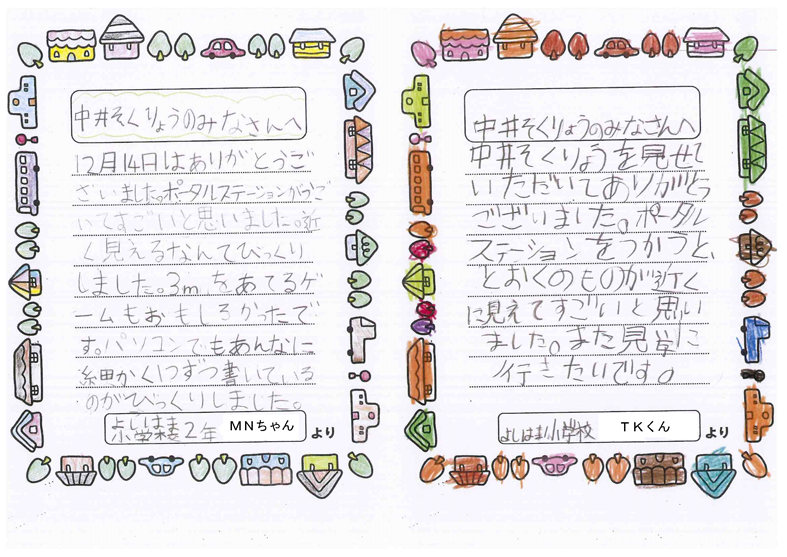 中井そくりょうのみなさんへ
12月14日はありがとうご
ざいました。ポータルステーションがうご
いてすごいと思いました。近
く見えるなんてびっくり
しました。3m を あてるゲ
ームもおもしろかったで
す。パソコンでもあんなに
細かく1つずつ書いている
のがびっくりしました。
よしはま
小学校2年 MNちゃん より
中井そくりょうのみなさんへ
中井そくりょうを見せて
いただいてありがとう
ございました。ポータル
ステーションをつかうと、
とおくのものが近く
に見えてすごいと思い
ました。また見学に
行きたいです。
よしはま小学校 TKくん より